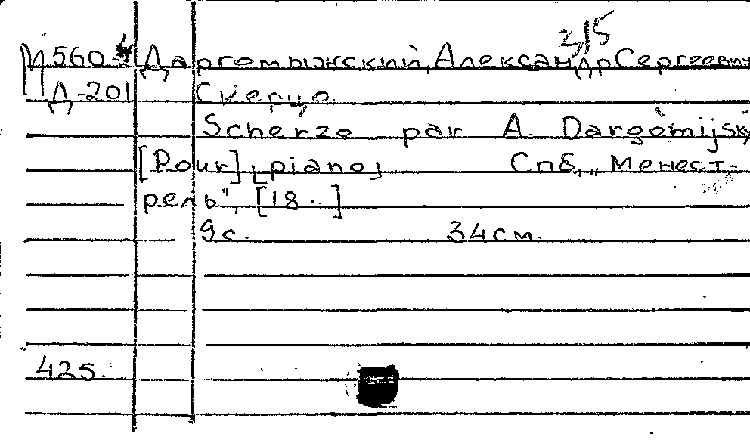 3/5
М560-4 Даргомыжский, Александр Сергеевич
Д-201 Скерцо.
Scherzo par A Dargomijsky
[Pour] piano,    Спб., „Менест-
рель", [18 . ]
9с.    34см.
425.